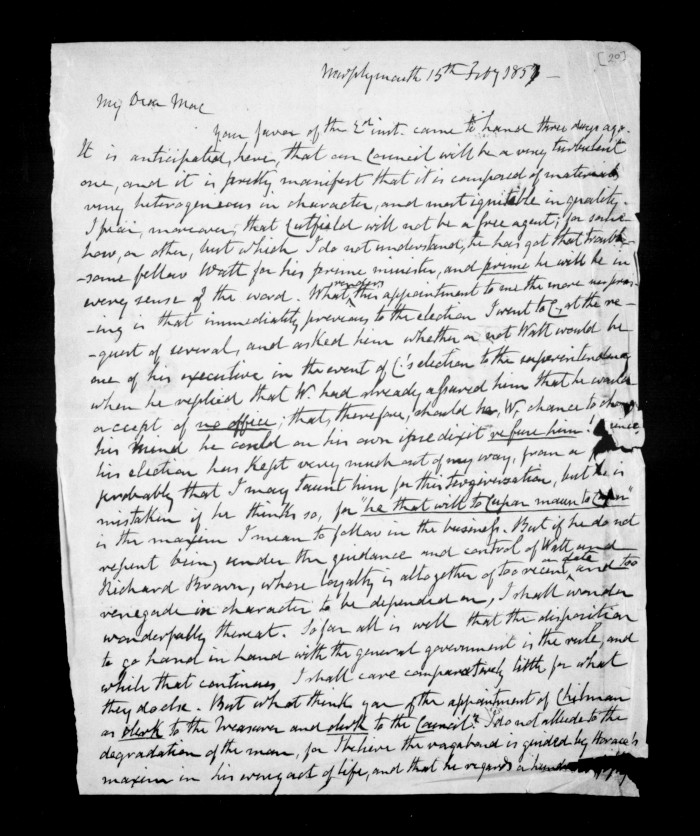 [20]
Newplymouth 15th Feby 1857 -
My Dear Mac
Your favor of the 2nd inst. came to hand three days ago.
It is anticipated, here, that our Council will be a very turbulent
one, and it is pretty manifest that it is composed of materials
very heterogeneous in character, and most ignitable in quality.
I fear, moreover, that Cutfield will not be a free agent; for some
how, or other, but which I do not understand, he has got that trouble-
-some fellow Watt for his prime minister, and prime he will be in
every sense of the word. What renders this appointment to me the more surpris-
-ing is that immediately previous to the election I went to C, at the re-
-quest of several, and asked him whether or not Watt would be
one of his executive in the event of C's election to the superintendence
when he replied that W. had already assured him that he would
accept of no office; that, therefore, should he, W, chance to change
his mind he could on his own ipse dixit refuse him. Since
his election has kept very much out of my way, from a
probably that I may taunt him for this tergiverization, but he is
mistaken if he thinks so, for "he that will to Cupar maun to Cupar"
is the maxim I mean to follow in the business. But if he do not
repent being under the guidance and control of Watt and
Richard Brown, whose loyalty is altogether of too recent a date and too
renegade in character to be depended on, I shall wonder
wonderfully thereat. So far all is well that the disposition
to go hand in hand with the general government is the rule, and
while that continues I shall care comparatively little for what
they do else. But what think you of the appointment of Chilman
as clerk to the Treasurer and clerk to the Council? I do not allude to the
degradation of the man, for I believe the vagabond is guided by Horace's
maxim in his every act of life, and that he regards a hundred